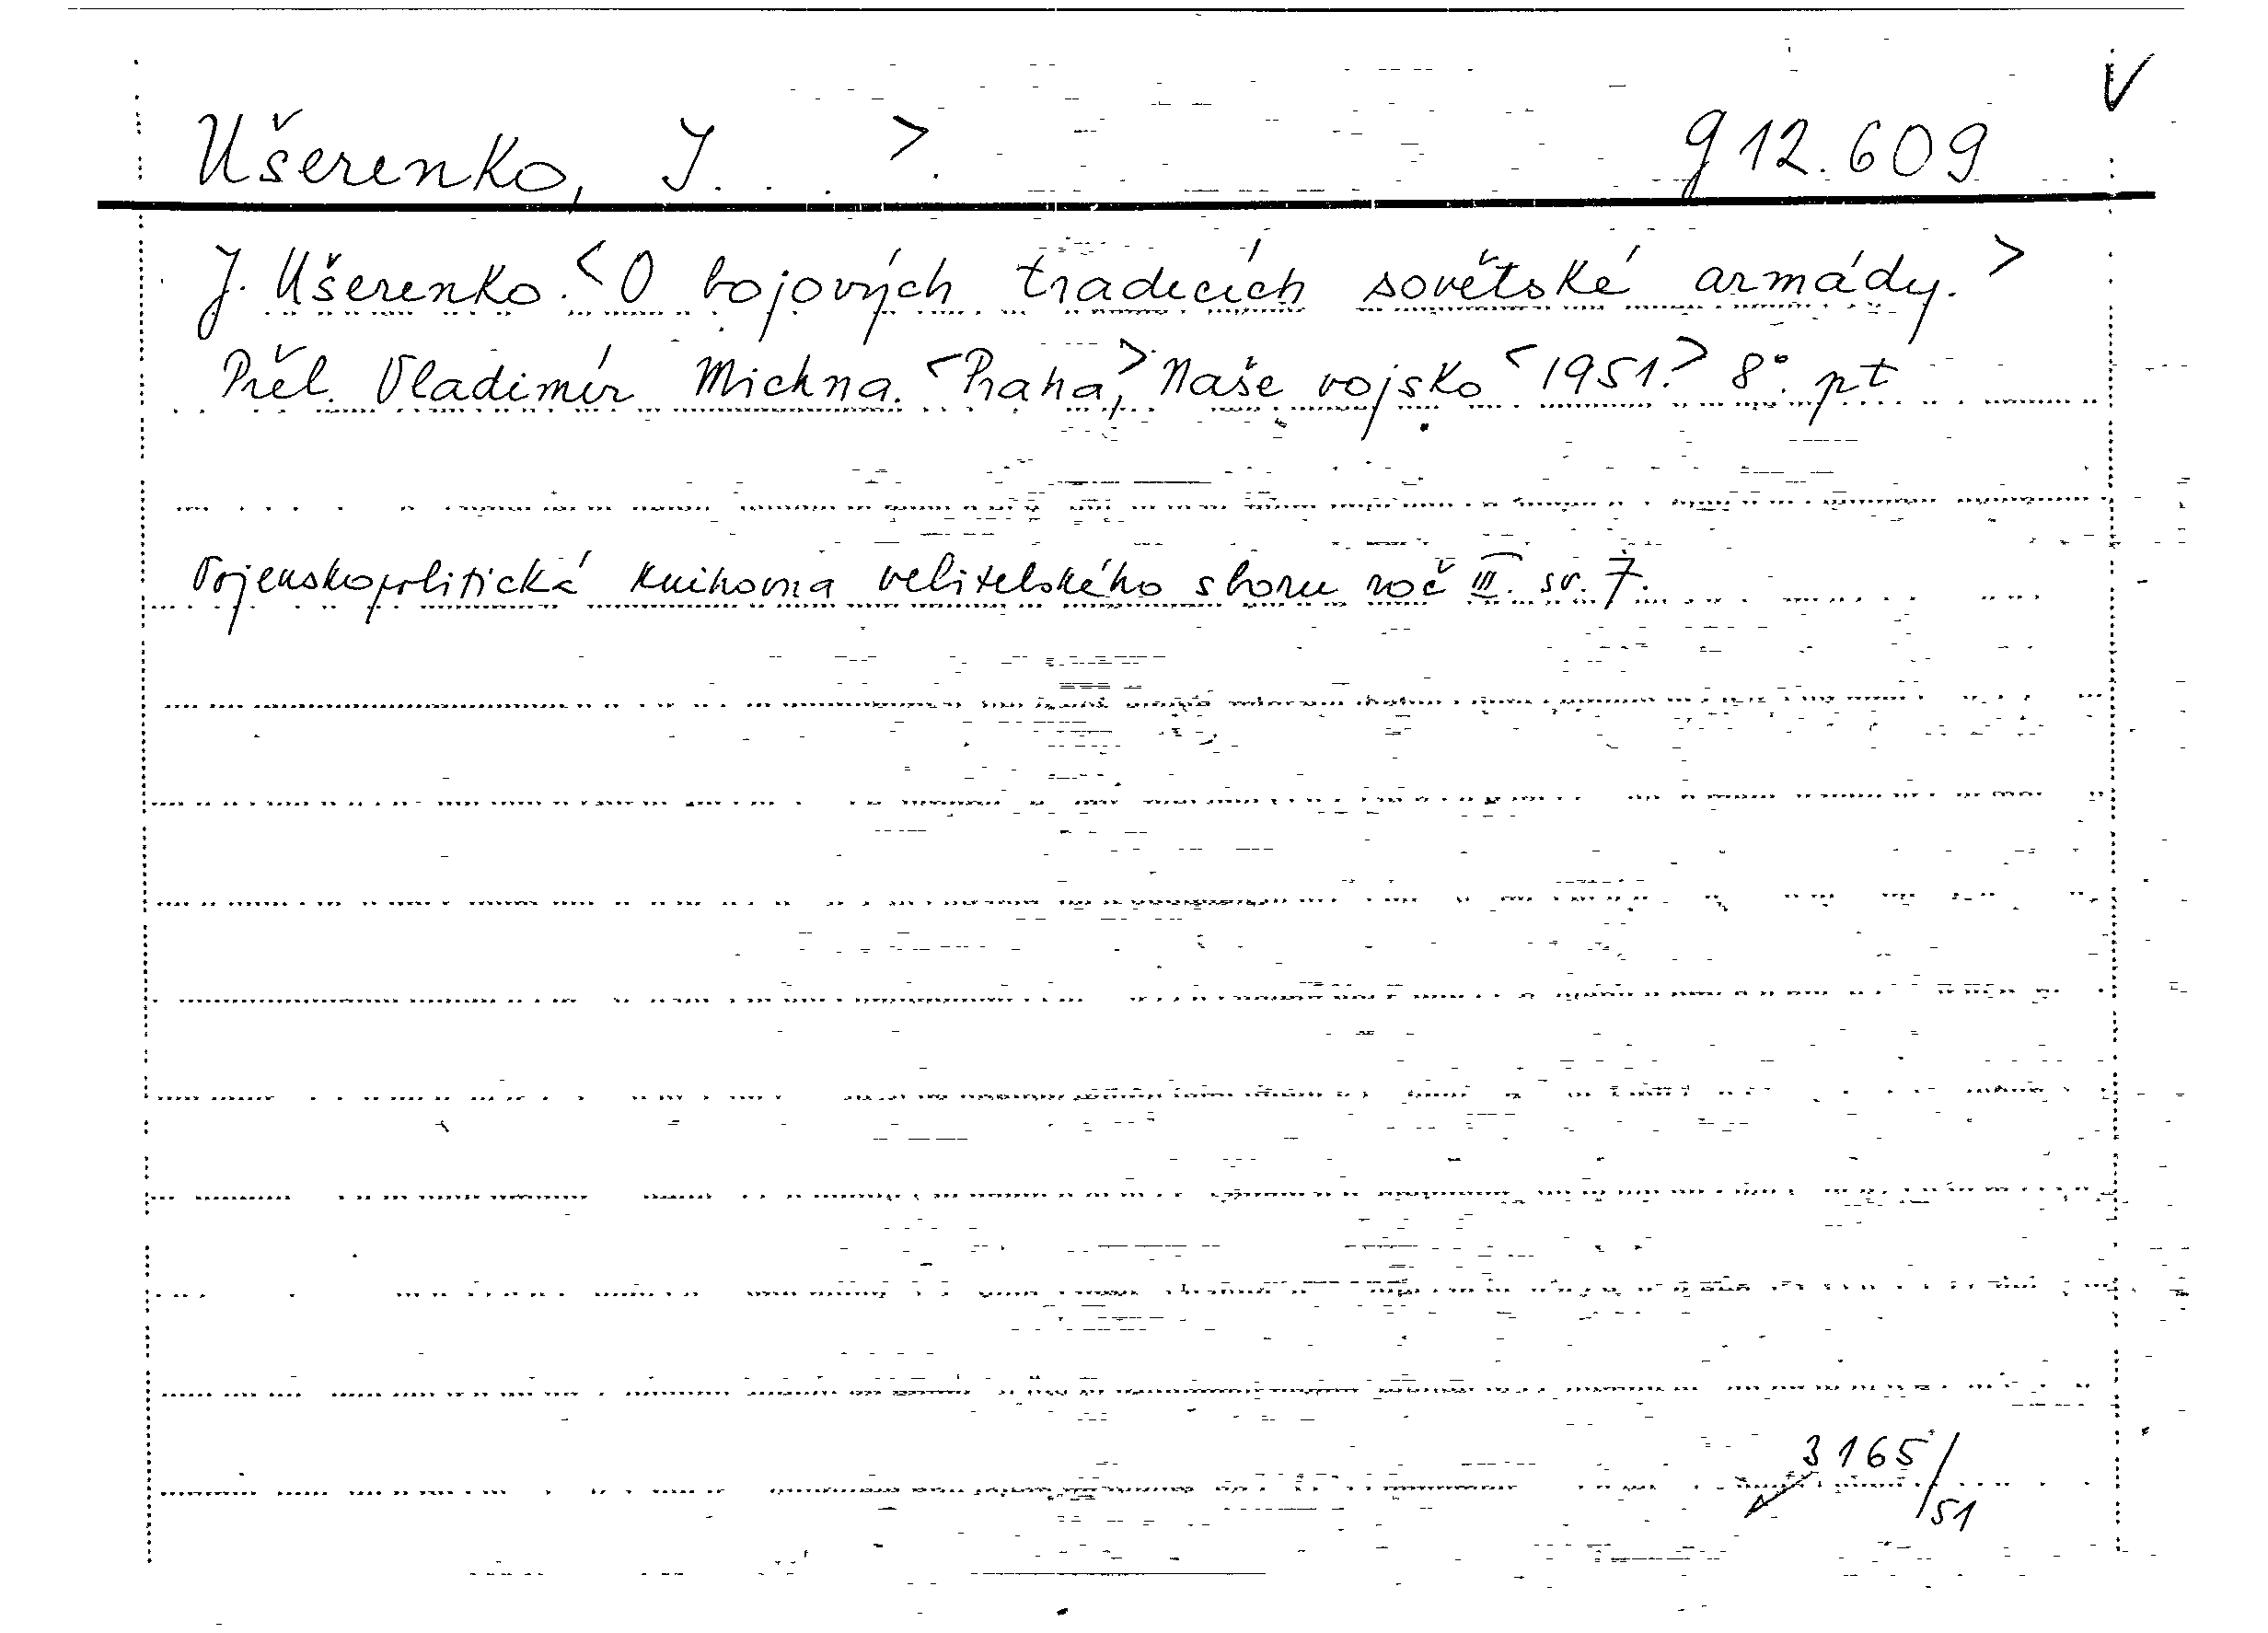 Ušerenko, J. . . . > . g 12.609
J. Ušerenko. <O bojových tradicích sovětské armády.>
Přel. Vladimír Michna. <Praha,> Naše vojsko <1951.> 8°. pt
Vojenskopolitická knihovna velitelského sboru roč III. sv. 7.
3165/51